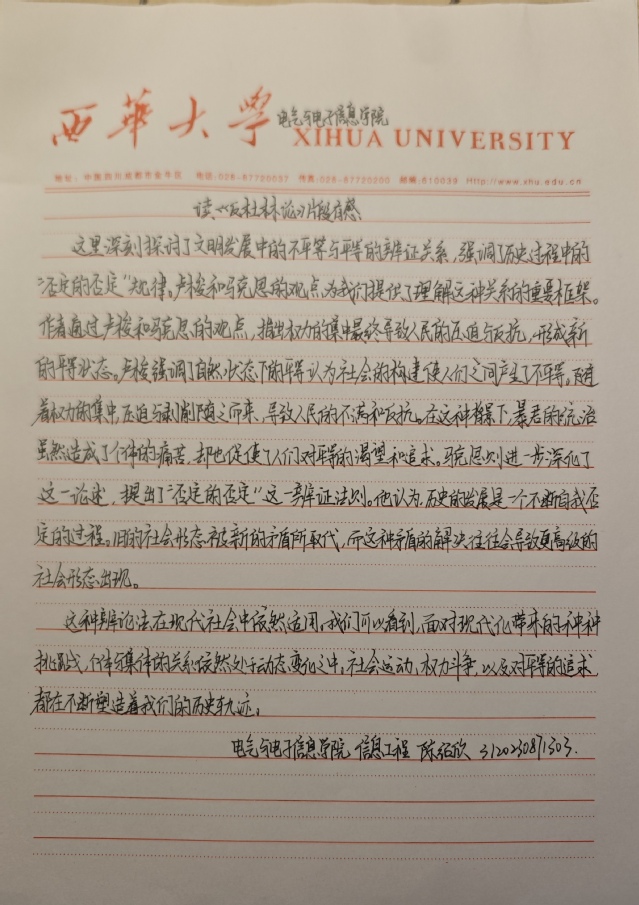 西華大學
电气与电子信息学院
XIHUA UNIVERSITY
地址：中国四川成都市金牛区 电话：028-87720037 传真：028-87720200 邮编：610039 Http://www.xhu.edu.cn
读《反杜林论》片段有感
这里深刻探讨了文明发展中的不平等与平等的辨证关系，强调了历史过程中的
“否定的否定”规律。卢梭和马克思的观点为我们提供了理解这种关系的重要框架。
作者通过卢梭和马克思的观点，指出权力的集中最终导致人民的压迫与反抗，形成新
的平等状态。卢梭强调了自然状态下的平等认为社会的构建使人们之间产生了不平等。随
着权力的集中，压迫与剥削随之而来，导致人民的不满和反抗。在这种情景下，暴君的统治
虽然造成了个体的痛苦，却也促使了人们对平等的渴望和追求。马克思则进一步深化了
这一论述，提出了“否定的否定”这一辨证法则。他认为，历史的发展是一个不断自我否
定的过程。旧的社会形态被新的矛盾所取代，而这种矛盾的解决往往会导致更高级的
社会形态出现。
这种辨论法在现代社会中依然适用。我们可以看到，面对现代化带来的种种
挑战，个体与集体的关系依然处于动态变化之中，社会运动，权力斗争，以及对平等的追求
都在不断塑造着我们的历史轨迹。
电气与电子信息学院 信息工程 陈绍欣 3120230871303.